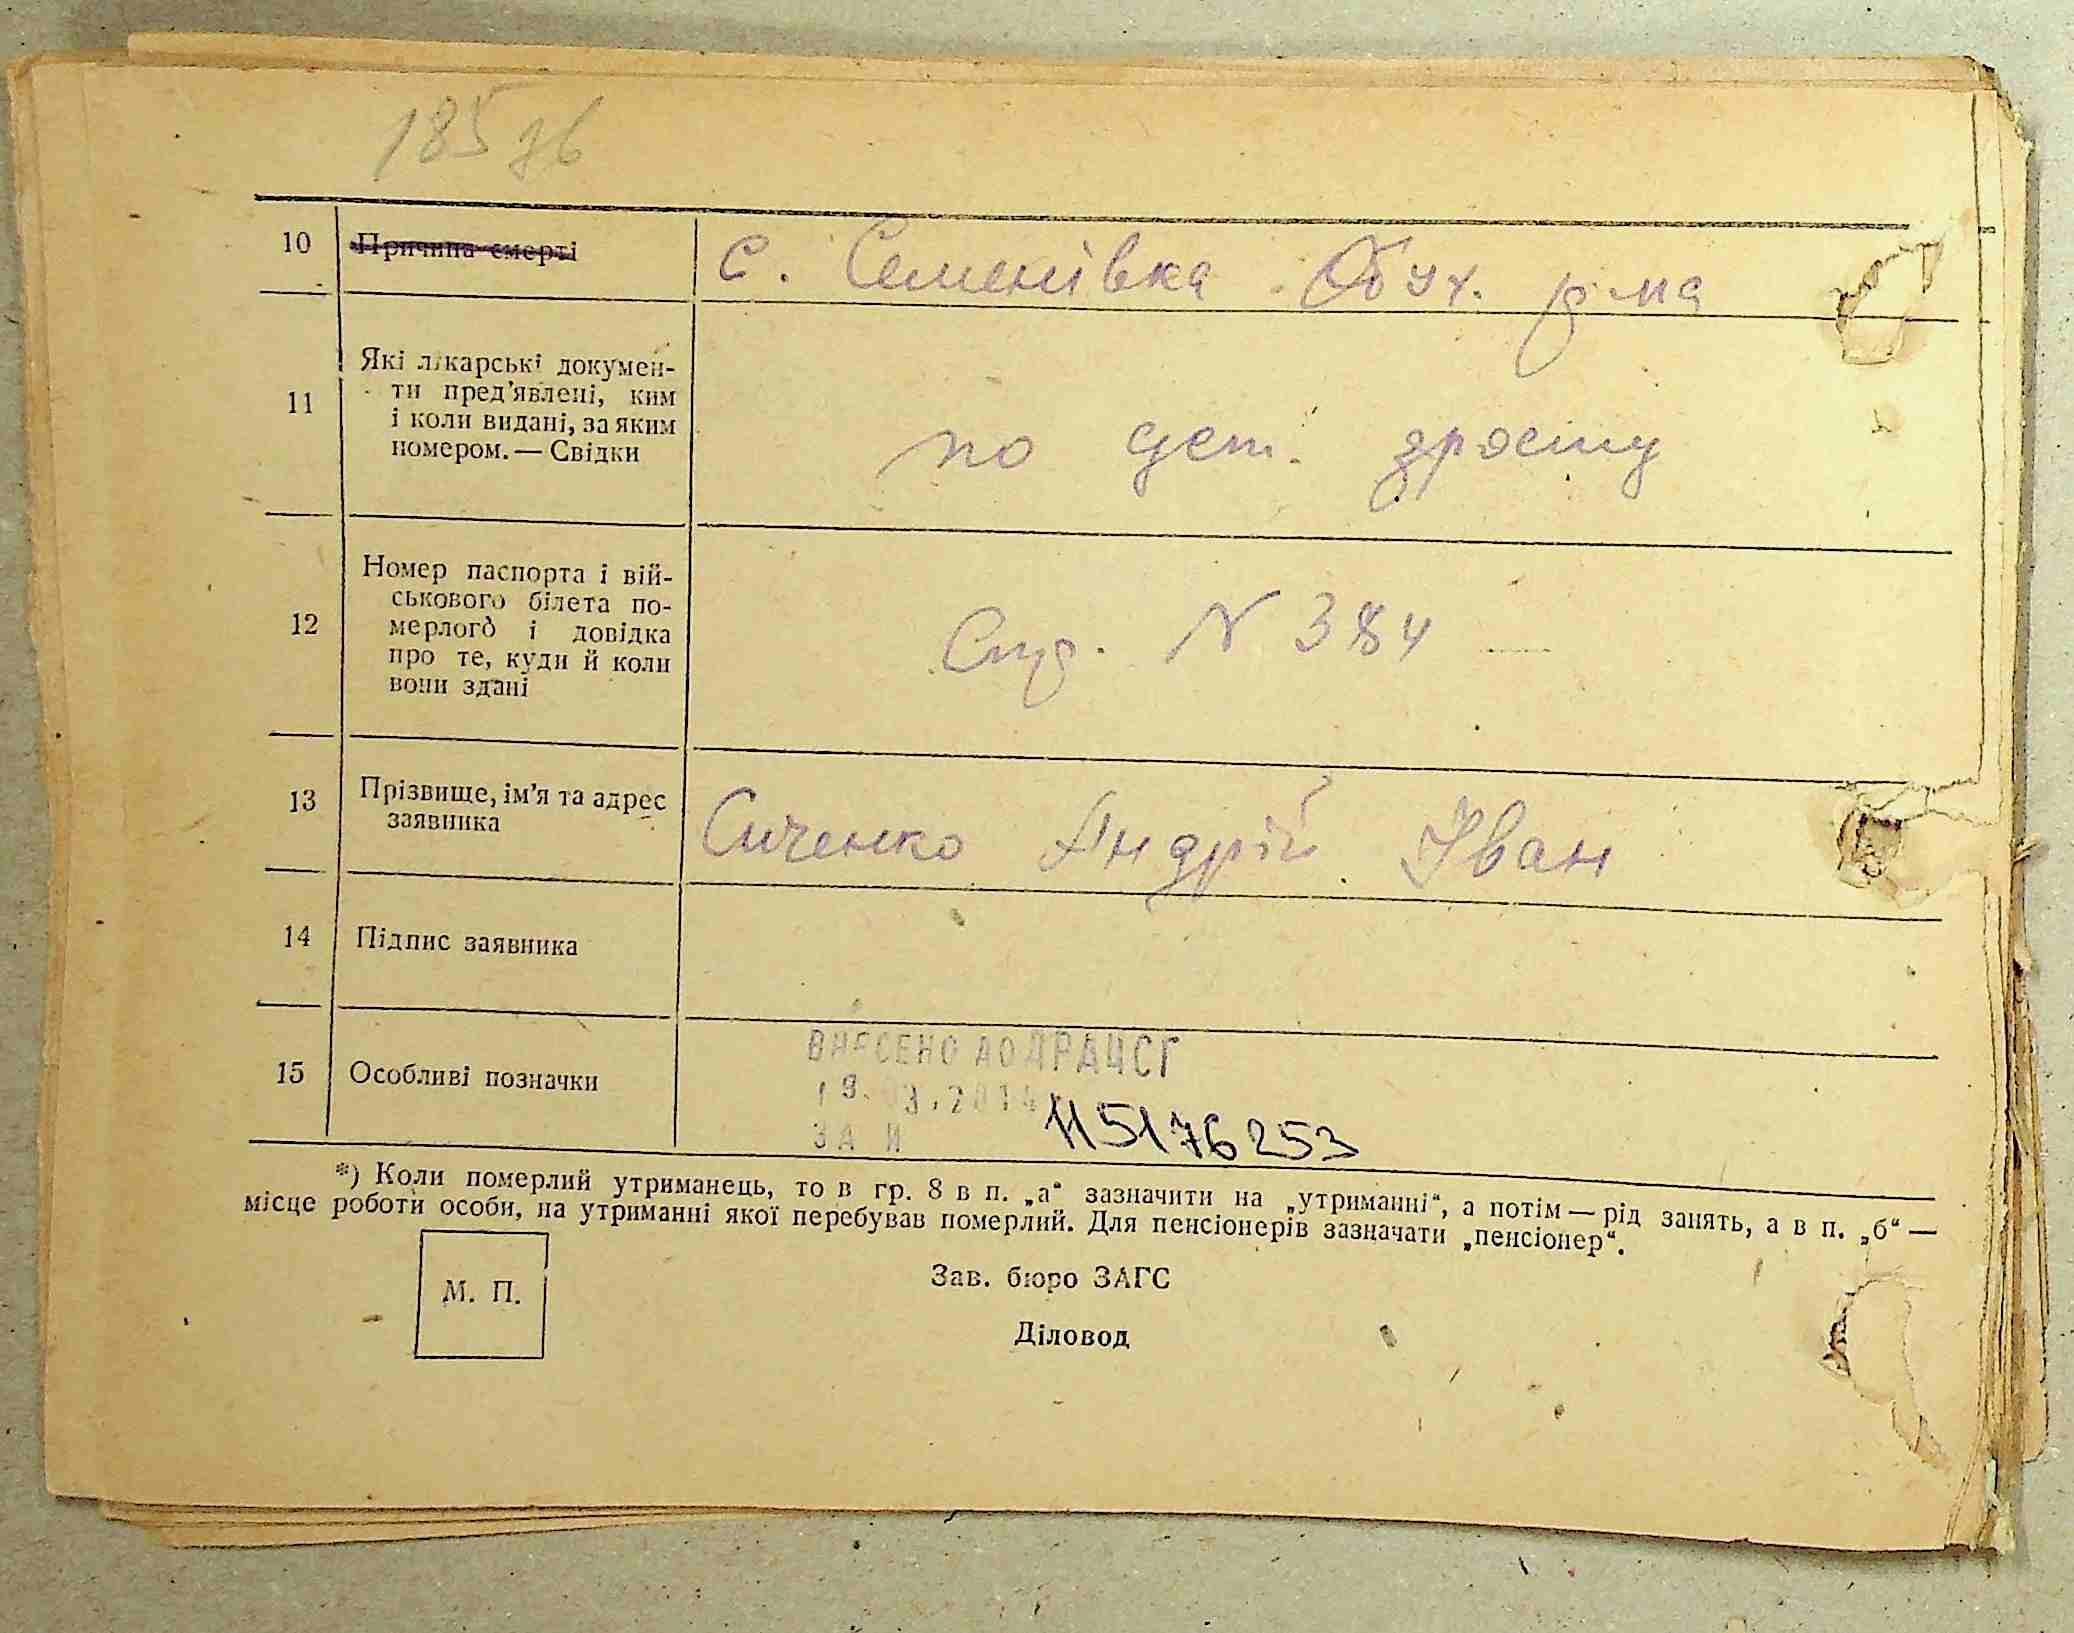 185 76
10 Причина смерті с. Семенівка Обух. р-на
11 Які лікарські докумен-
ти пред'явлені, ким
і коли видані, за яким
номером. — Свідки
по
12 Номер паспорта і вій-
ськового білета по-
мерлого і довідка
про те, куди й коли
вони здані
N 384
13 Прізвище, ім'я та адрес
заявника
Сиченко Андрій Іван
14 Підпис заявника
15 Особливі позначки
ВНЕСЕНО ДО ДРАЦСГ
19.03.2014
ЗА И 115176253
*) Коли померлий утриманець, то в гр. 8 в п. „а“ зазначити на „утриманні“, а потім — рід занять, а в п. „б“ —
місце роботи особи, на утриманні якої перебував померлий. Для пенсіонерів зазначати „пенсіонер“.
М. П.
Зав. бюро ЗАГС
Діловод